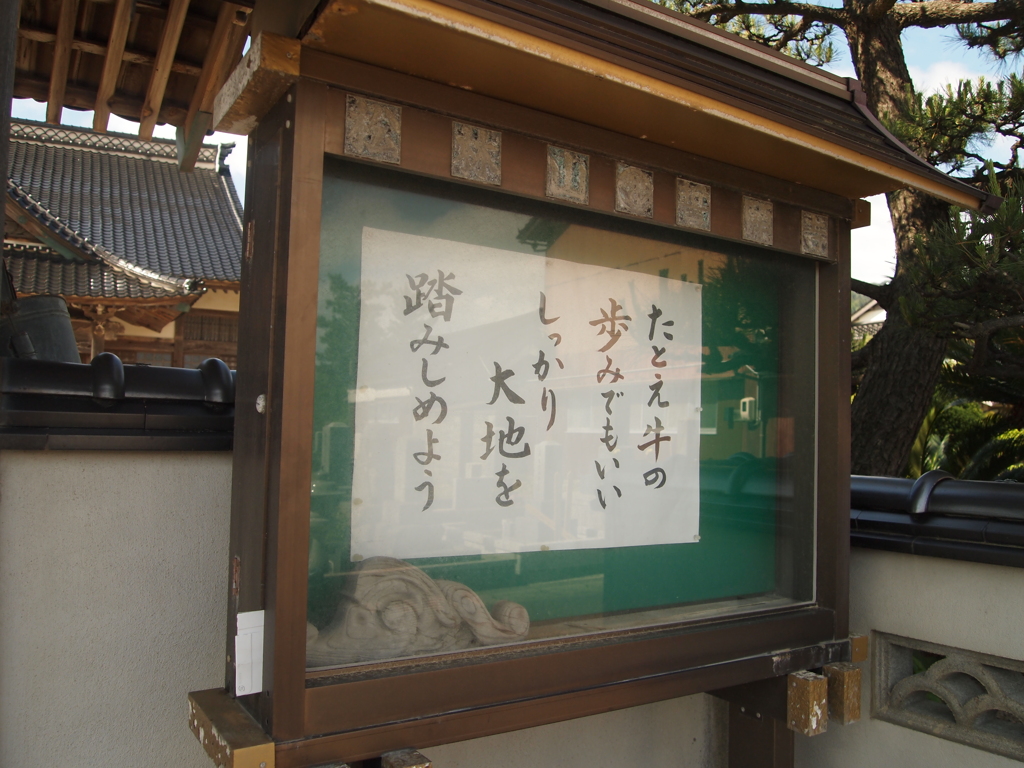 たとえ牛の
歩みでもいい
しっかり
大地を
踏みしめよう